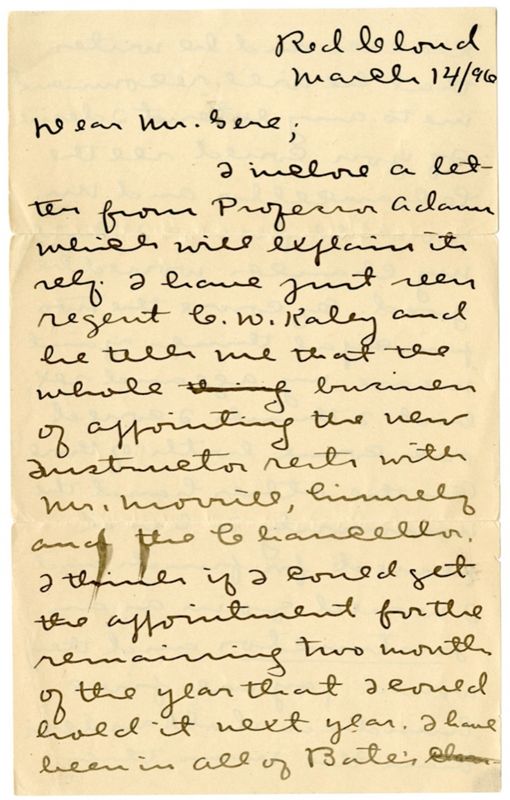 Red Cloud
March 14/96
Dear Mr. Gere;
I inclose a let-
ter from Professor Adams
which will explain its
self. I have just seen
regent C. W. Kaley and
he tells me that the
whole thing business
of appointing the new
Instructor rests with
Mr. Morrill, himself
and the Chancellor.
I think if I could get
the appointment for the
remaining two months
of the year that I could
hold it next year. I have
been in all of Bates clas-